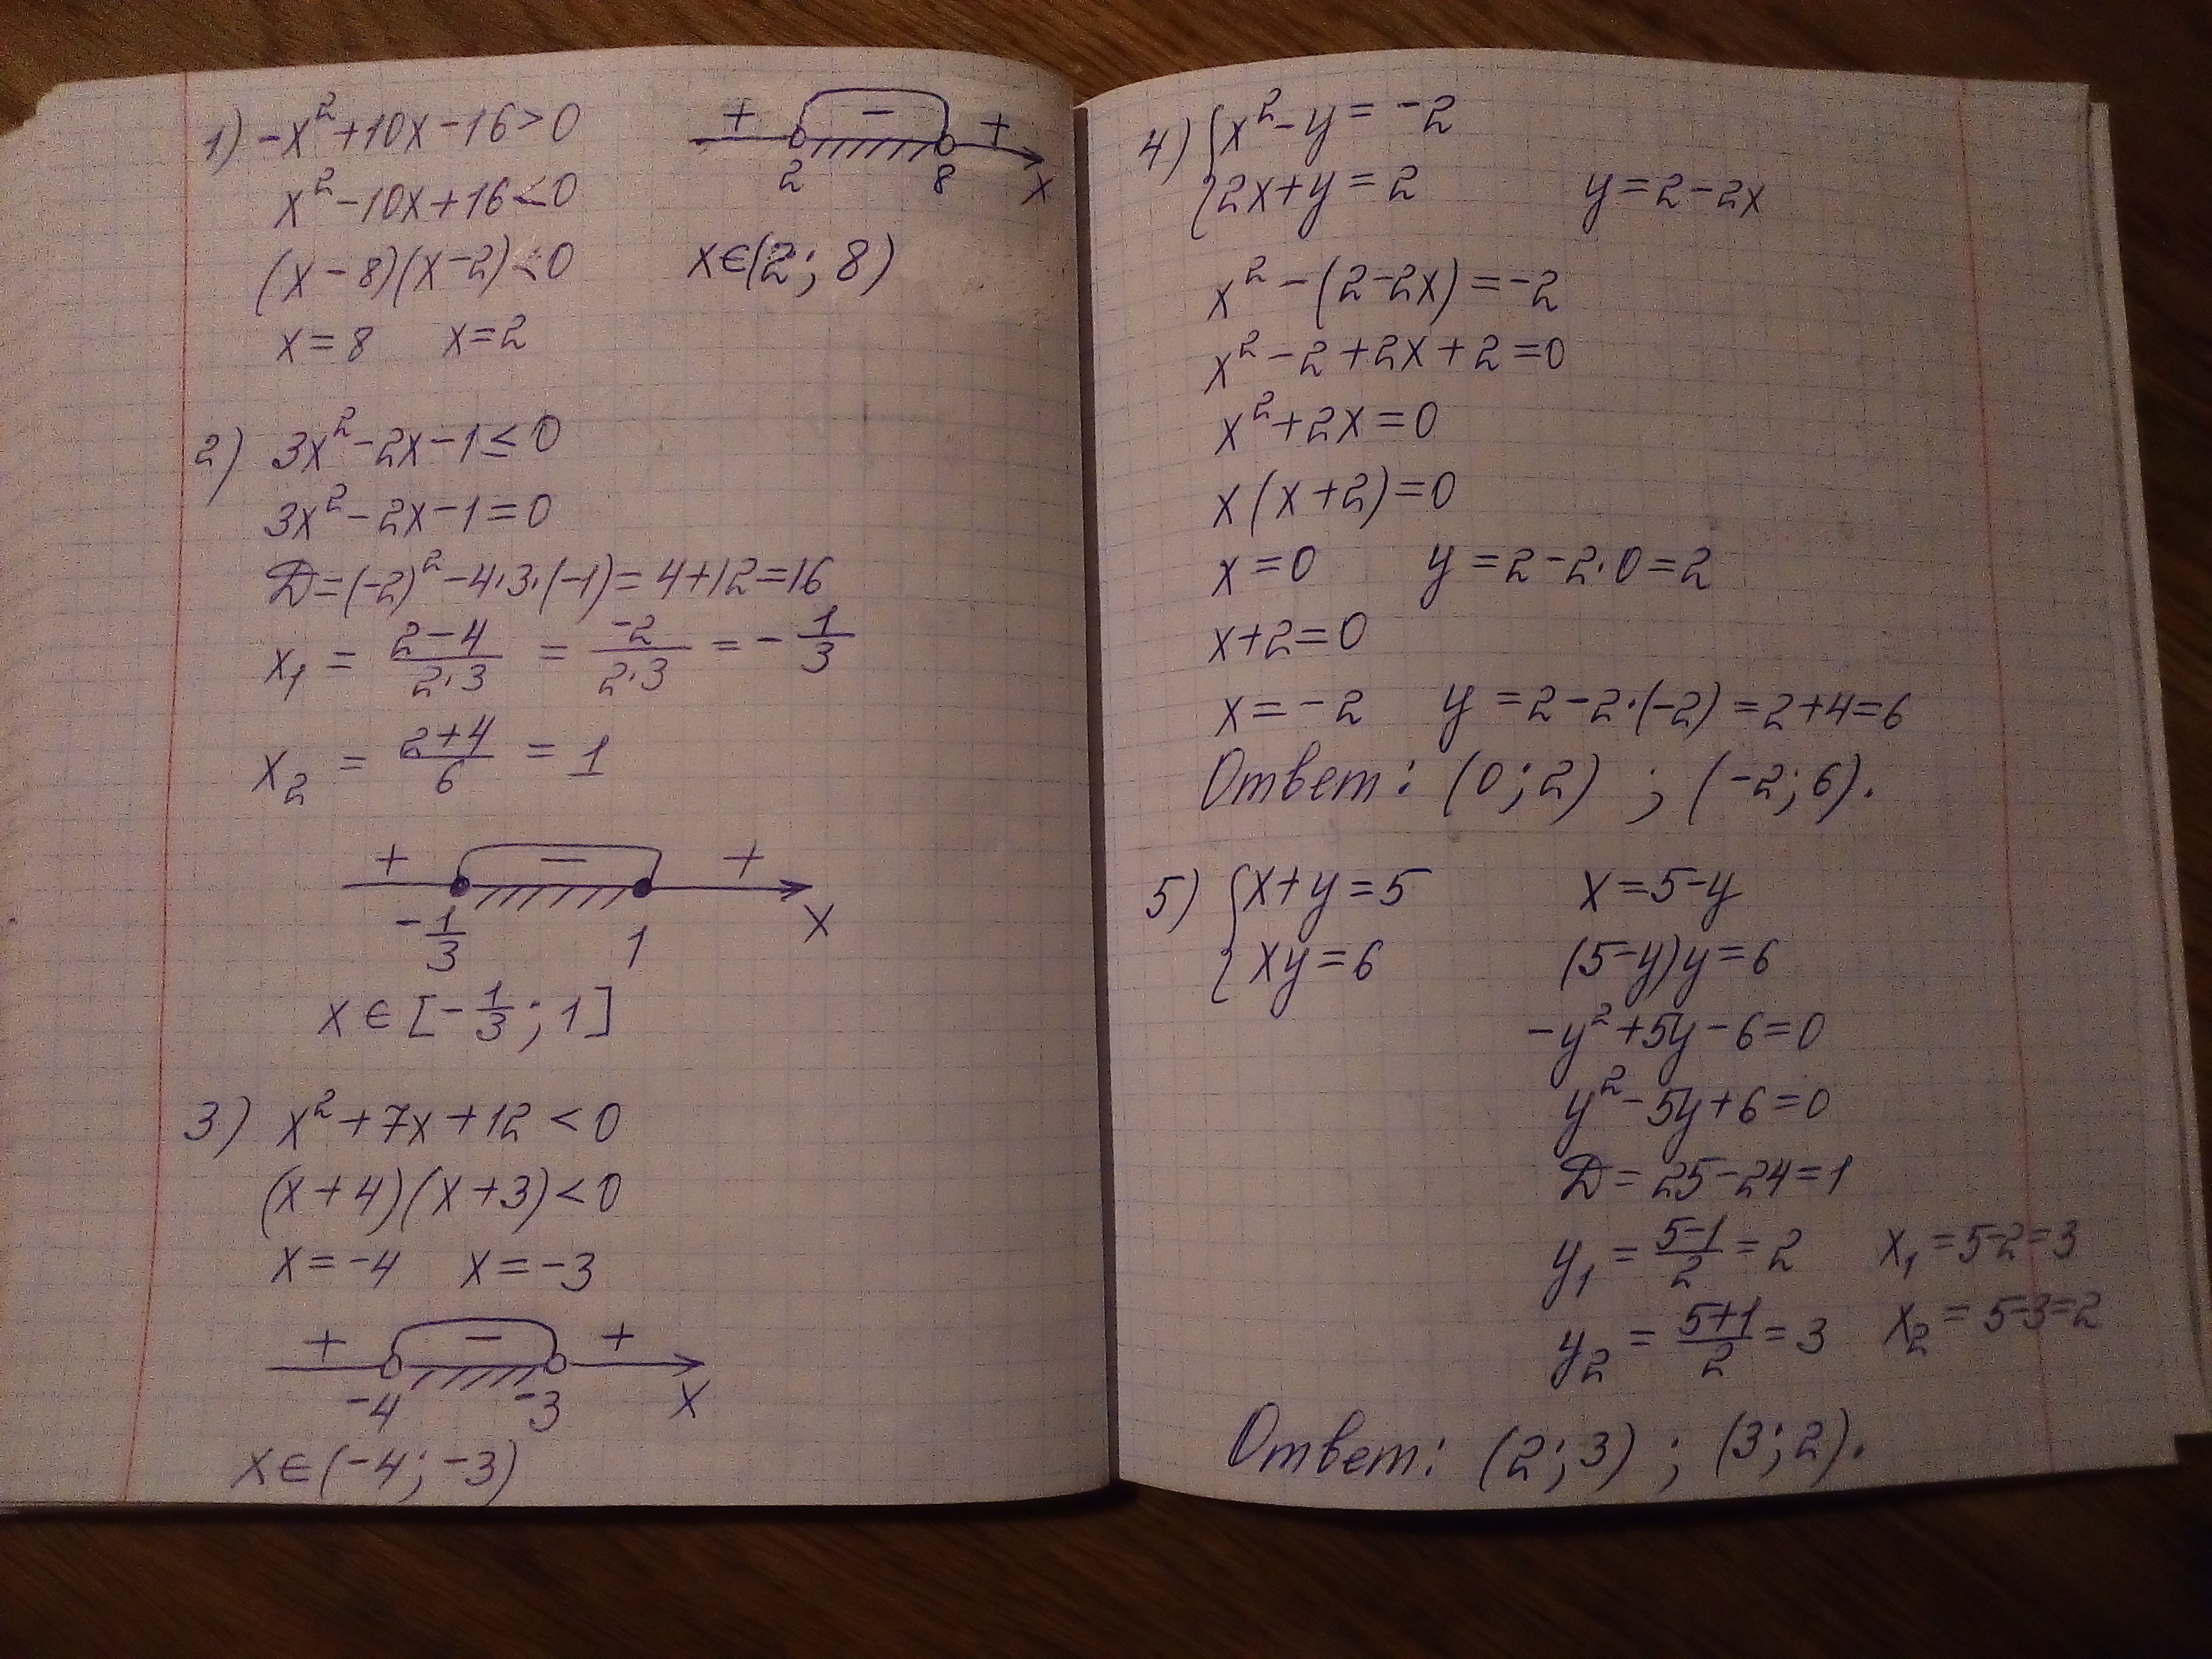 1) -x²+10x-16>0
x²-10x+16<0
(x-8)(x-2)<0
x=8 x=2
+ - +
2 8 x
x∈(2; 8)
2) 3x²-2x-1≤0
3x²-2x-1=0
D=(-2)²-4·3·(-1)=4+12=16
x₁ = (2-4)/(2·3) = -2/(2·3) = -1/3
x₂ = (2+4)/6 = 1
+ - +
-1/3 1 x
x∈[-1/3; 1]
3) x²+7x+12<0
(x+4)(x+3)<0
x=-4 x=-3
+ - +
-4 -3 x
x∈(-4; -3)
4) {x²-y=-2
{2x+y=2 y=2-2x
x²-(2-2x)=-2
x²-2+2x+2=0
x²+2x=0
x(x+2)=0
x=0 y=2-2·0=2
x+2=0
x=-2 y=2-2·(-2)=2+4=6
Ответ: (0;2) ; (-2;6).
5) {x+y=5 x=5-y
{xy=6 (5-y)y=6
-y²+5y-6=0
y²-5y+6=0
D=25-24=1
y₁ = (5-1)/2 = 2 x₁=5-2=3
y₂ = (5+1)/2 = 3 x₂=5-3=2
Ответ: (2;3) ; (3;2).